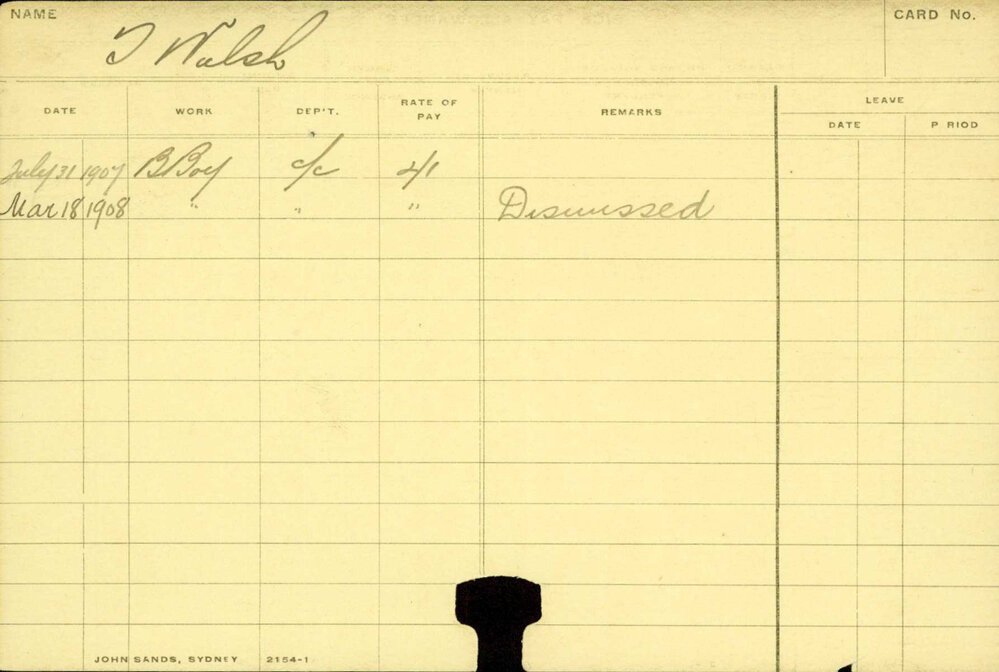 NAME
CARD No.
T Walsh
DATE WORK DEP'T. RATE OF PAY REMARKS LEAVE
DATE P RIOD
July 31 1907 B Boy c/c 4/1
Mar 18 1908 " " " Dismissed
JOHN SANDS, SYDNEY 2154-1